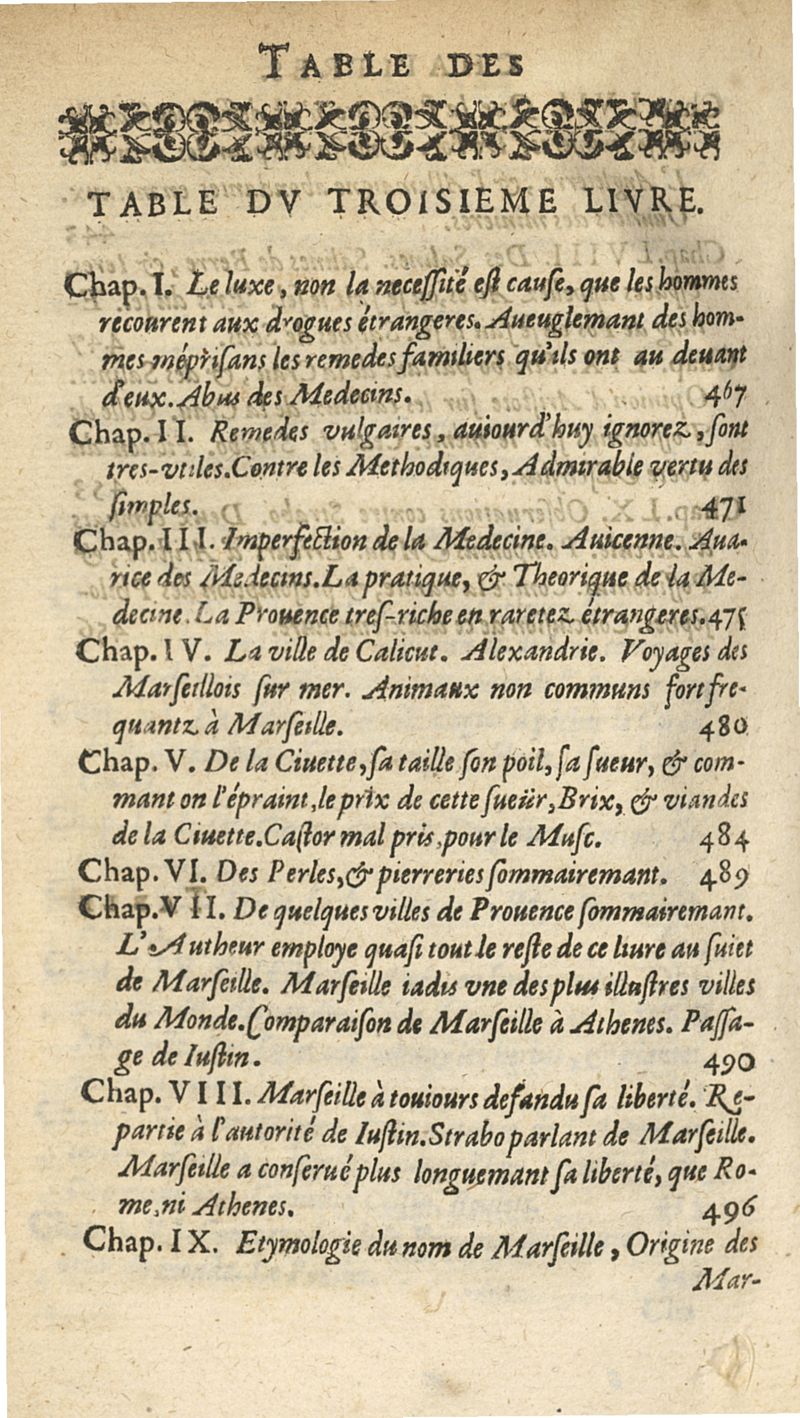 TABLE DES
TABLE DV TROISIEME LIVRE.
Chap. I. Le luxe, non la neceſſité est cauſe, que les hommes
recourent aux drogues étrangeres. Aueuglemant des hom-
mes mépriſans les remedes familiers qu'ils ont au deuant
d'eux. Abus des Medecins. 467
Chap. II. Remedes vulgaires, auiourd'huy ignorez, ſont
tres-vtiles. Contre les Methodiques, Admirable vertu des
ſimples. 471
Chap. III. Imperfection de la Medecine. Auicenne. Aua-
rice des Medecins. La pratique, & Theorique de la Me-
decine. La Prouence treſ-riche en raretez étrangeres. 475
Chap. IV. La ville de Calicut. Alexandrie. Voyages des
Marſeillois ſur mer. Animaux non communs fort fre-
quantz à Marſeille. 480
Chap. V. De la Ciuette, ſa taille ſon poil, ſa ſueur, & com-
mant on l'épraint, le prix de cette ſueür, Brix, & viandes
de la Ciuette. Caſtor mal pris, pour le Muſc. 484
Chap. VI. Des Perles, & pierreries ſommairemant. 489
Chap. VII. De quelques villes de Prouence ſommairemant.
L'Autheur employe quaſi tout le reſte de ce liure au ſuiet
de Marſeille. Marſeille iadis vne des plus illuſtres villes
du Monde. Comparaiſon de Marſeille à Athenes. Paſſa-
ge de Iuſtin. 490
Chap. VIII. Marſeille à touiours defandu ſa liberté. Re-
partie à l'autorité de Iuſtin. Strabo parlant de Marſeille.
Marſeille a conſerué plus longuemant ſa liberté, que Ro-
me, ni Athenes. 496
Chap. IX. Etymologie du nom de Marſeille, Origine des
Mar-